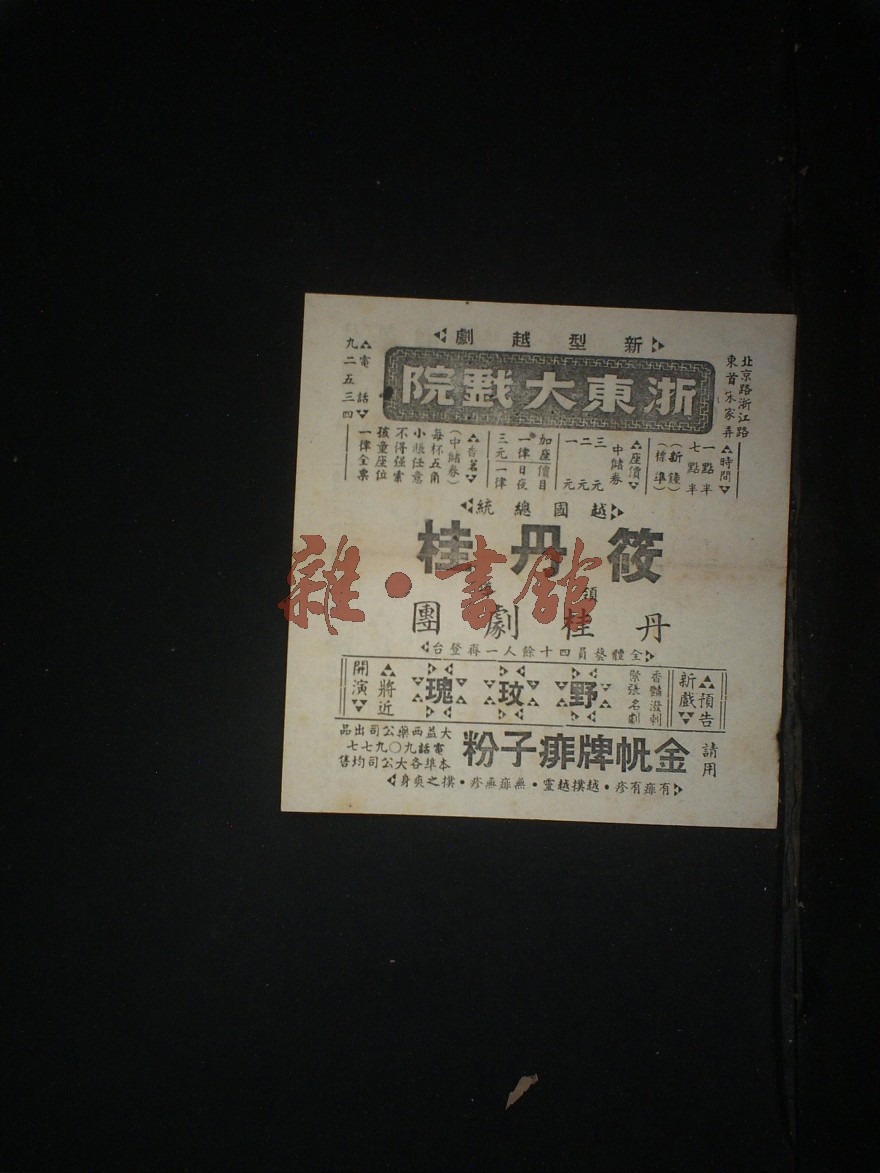 新型越劇
浙東大戲院
北京路浙江路
東首宋家弄
電話
九二五三四
時間
一點半
七點半
(新鐘)
(標準)
座價
中儲券
三元
二元
一元
加座價目
一律日夜
三元一律
香茗
(中儲券)
每杯五角
小賬任意
不得強索
孩童座位
一律全票
越國總統
筱丹桂
領
丹桂劇團
全體藝員四十餘人一再登台
預告
新戲
香豔潑剌
緊張名劇
野玫瑰
將近
開演
請用
金帆牌痱子粉
大益西藥公司出品
電話九〇九七七
本埠各大公司均售
有痱有疹·越撲越靈·無痱無疹·撲之爽身
雜·書館